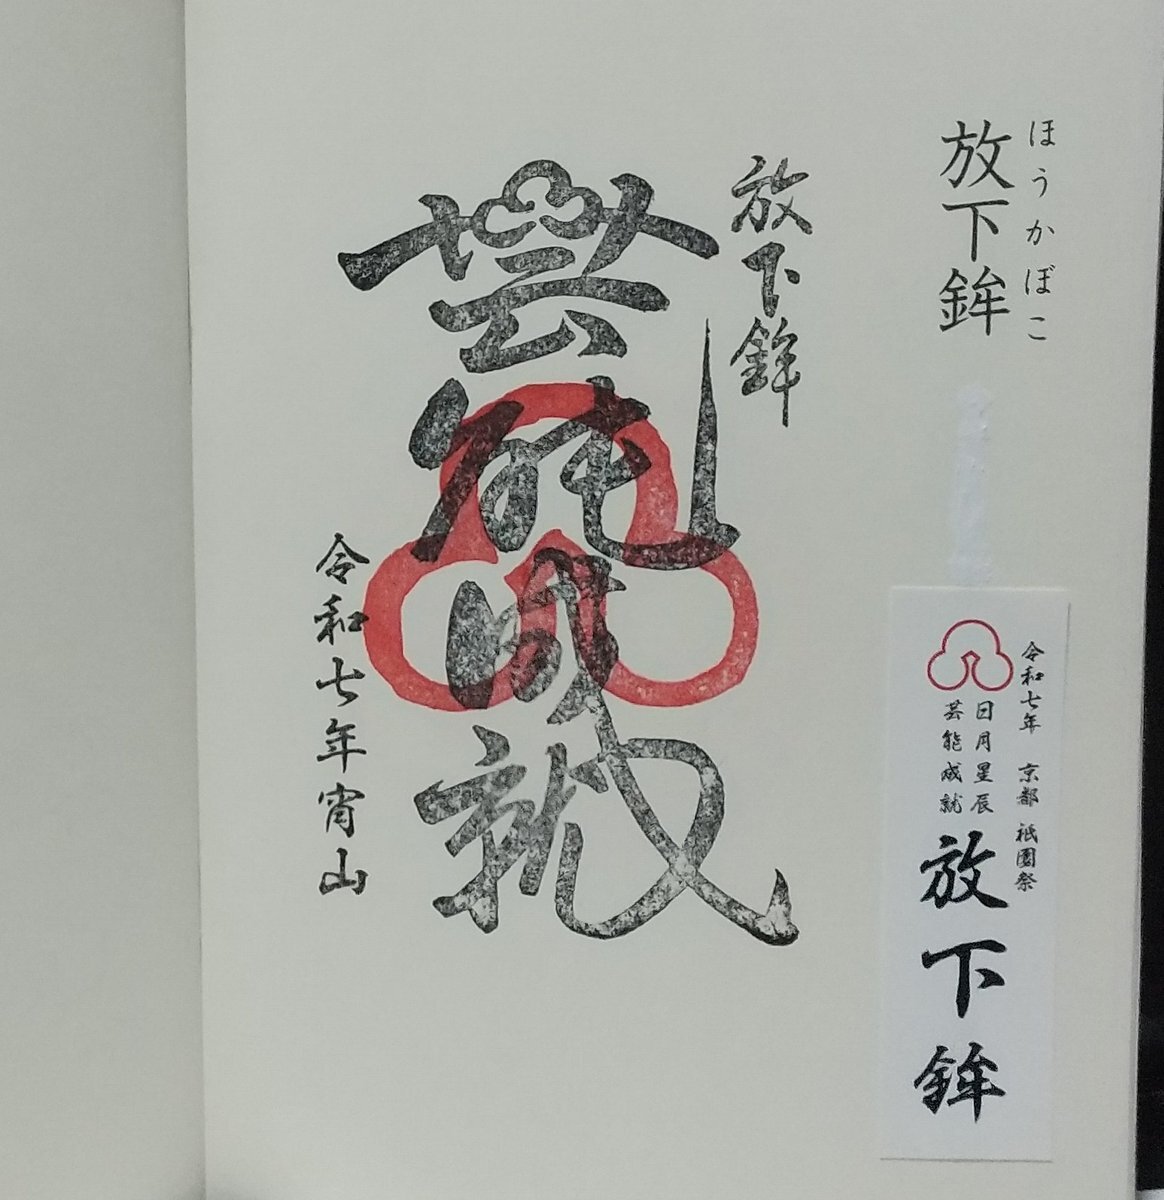 ほうかぼこ
放下鉾
令和七年 京都 祇園祭
日月星辰
芸能成就
放下鉾
放下鉾
芸能成就
令和七年宵山